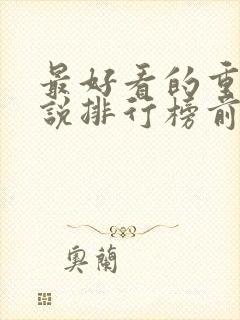 最好看的重
説排行榜前
奥蘭